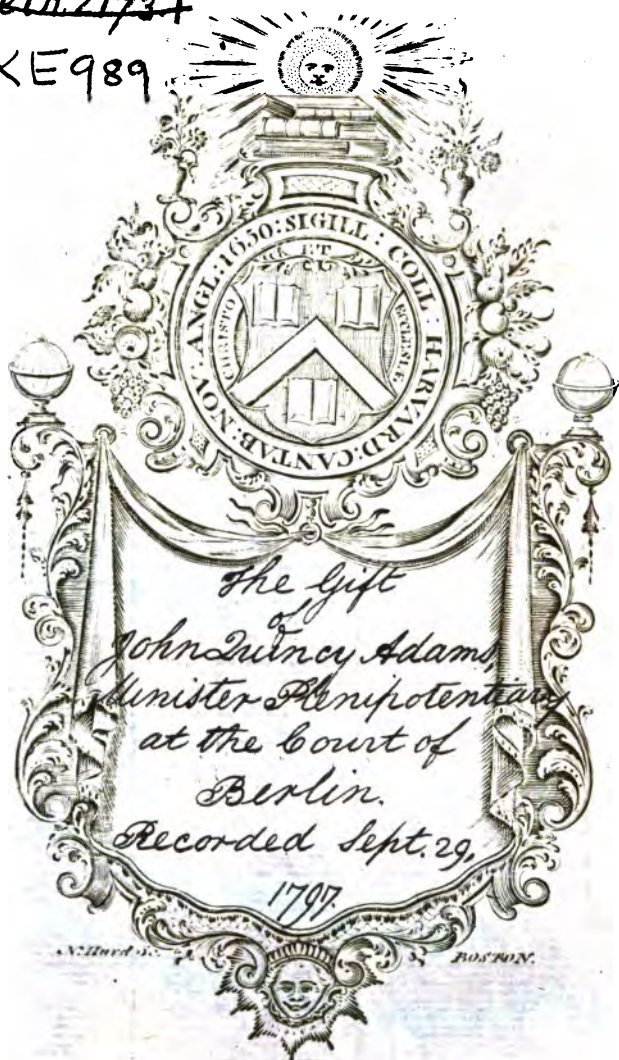 KE989
SIGILL : COLL : HARVARD : CANTAB : NOV : ANGL : 1650 :
CHRISTO ET ECCLESIÆ
The Gift
of
John Quincy Adams,
Minister Plenipotentiary
at the Court of
Berlin.
Recorded Sept. 29,
1797.
N. Hurd Sc. BOSTON.